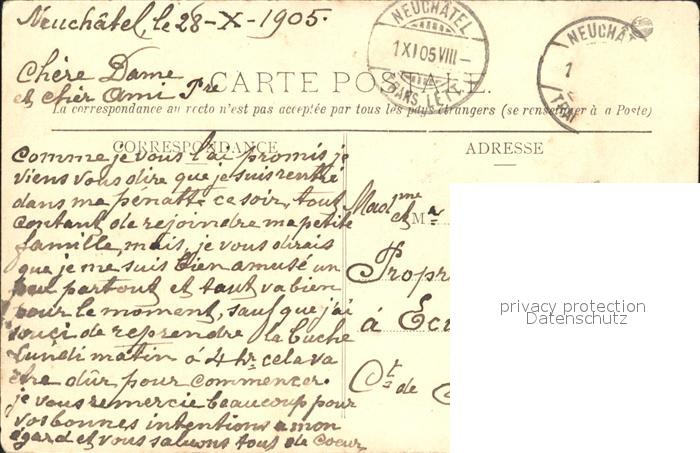 Neuchâtel, le 28-X-1905.
NEUCHÂTEL
1 XI 05 VIII -
NEUCHÂ
1
Chère Dame
et cher Ami
CARTE POSTALE.
La correspondance au recto n'est pas acceptée par tous les pays étrangers (se renseigner à la Poste)
CORRESPONDANCE
ADRESSE
comme je vous l'ai promis, je
viens vous dire que je suis rentré
dans me pénatte ce soir, tout
contant de rejoindre ma petite
famille, mais, je vous dirais
que je me suis bien amusé un
peu partout et tout va bien
pour le moment, sauf que j'ai
souçi de reprendre la buche
Lundi matin á 4 hr cela va
être dûr, pour commencer.
je vous remercie beaucoup pour
vos bonnes intentions a mon
égard et vous saluons tous de coeur
Mad me
et M
Propr
á Ecu
Ct de
privacy protection
Datenschutz